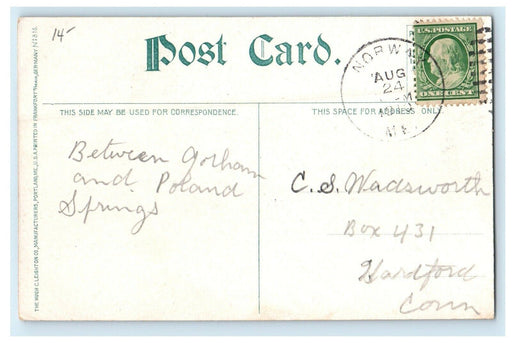 14-
Post Card.
U.S. POSTAGE
ONE CENT
NORWAY
AUG
24
ME.
THIS SIDE MAY BE USED FOR CORRESPONDENCE.
THIS SPACE FOR ADDRESS ONLY.
Between Gorham
and Poland
Springs
C. S. Wadsworth
Box 431
Hardford
Conn
THE HUGH C. LEIGHTON CO., MANUFACTURERS, PORTLAND, ME., U.S.A. PRINTED IN FRANKFORT